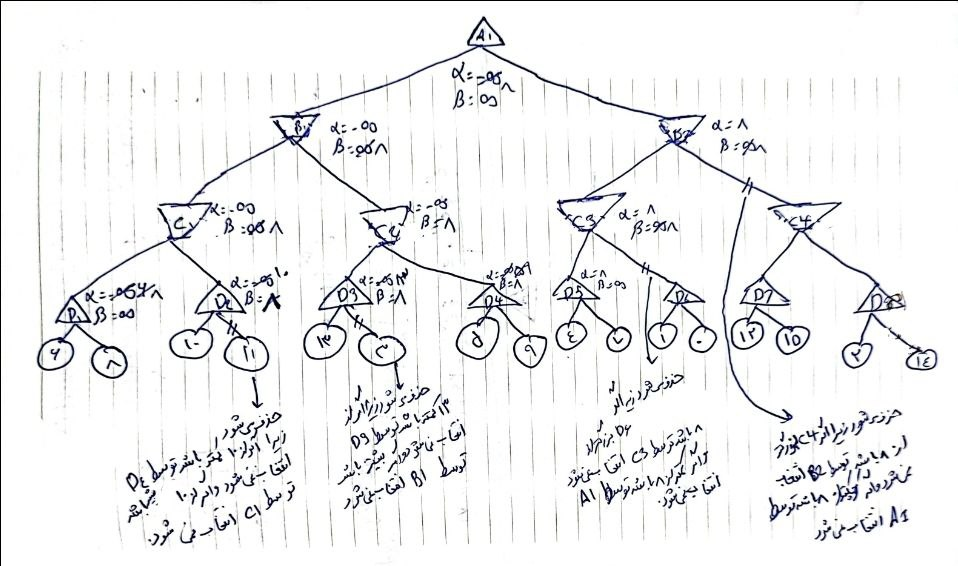 A1
α=-∞ ۸
β=∞
B1
α=-∞
β=∞ ۸
B2
α=۸
β=∞ ۸
C1
α=-∞
β=∞ ۸
C2
α=-∞
β=۸
C3
α=۸
β=∞ ۸
C4
D1
α=-∞ ۶ ۸
β=∞
D2
α=-∞ ۱۰
β=۸
D3
α=-∞ ۱۳
β=۸
D4
β=۸
D5
α=۸
β=∞
D6
D7
۶
۸
۱۰
۱۱
۱۳
۵
۹
۴
۷
۱
۰
۱۲
۱۵
۲
۱۴
حذف می شود
زیرا اگر از ۱۰ کمتر باشد توسط D4
انتخاب نمی شود و اگر از ۱۰ بیشتر باشد
توسط C1 انتخاب نمی شود.
حذف می شود زیرا اگر از
۱۳ کمتر باشد توسط D9
انتخاب نمی شود و اگر بیشتر باشد
توسط B1 انتخاب نمی شود
حذف می شود زیرا اگر
D6 بزرگتر از
۸ باشد توسط C3 انتخاب نمی شود
و اگر کمتر از ۸ باشد توسط A1
انتخاب نمی شود.
حذف می شود زیرا اگر C4 بزرگتر
از ۸ باشد توسط B2 انتخاب
نمی شود و اگر کوچکتر از ۸ باشد توسط
A1 انتخاب نمی شود